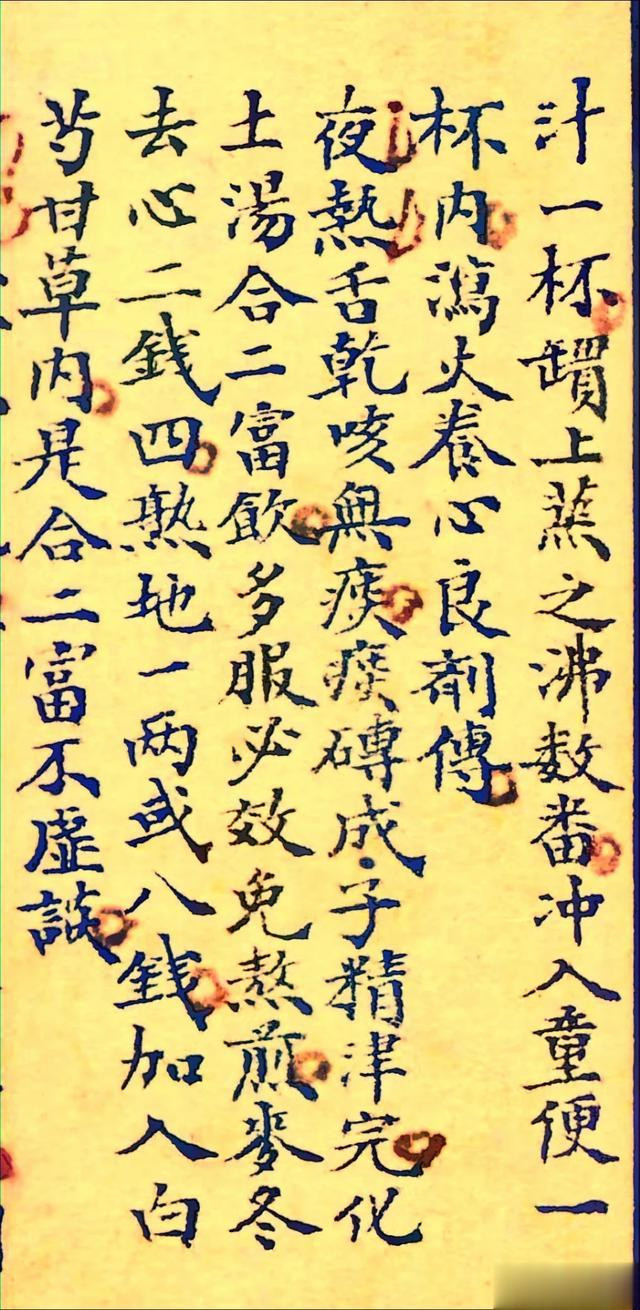 汁一杯罐上蒸之沸数番冲入童便一
杯内瀉火養心良剤傳
夜熱舌乾咳無痰痰磚成子精津完化
土湯合二富飲多服必效免熬煎麥冬
去心二錢四熟地一両或八錢加入白
芍甘草内是合二富不虛談